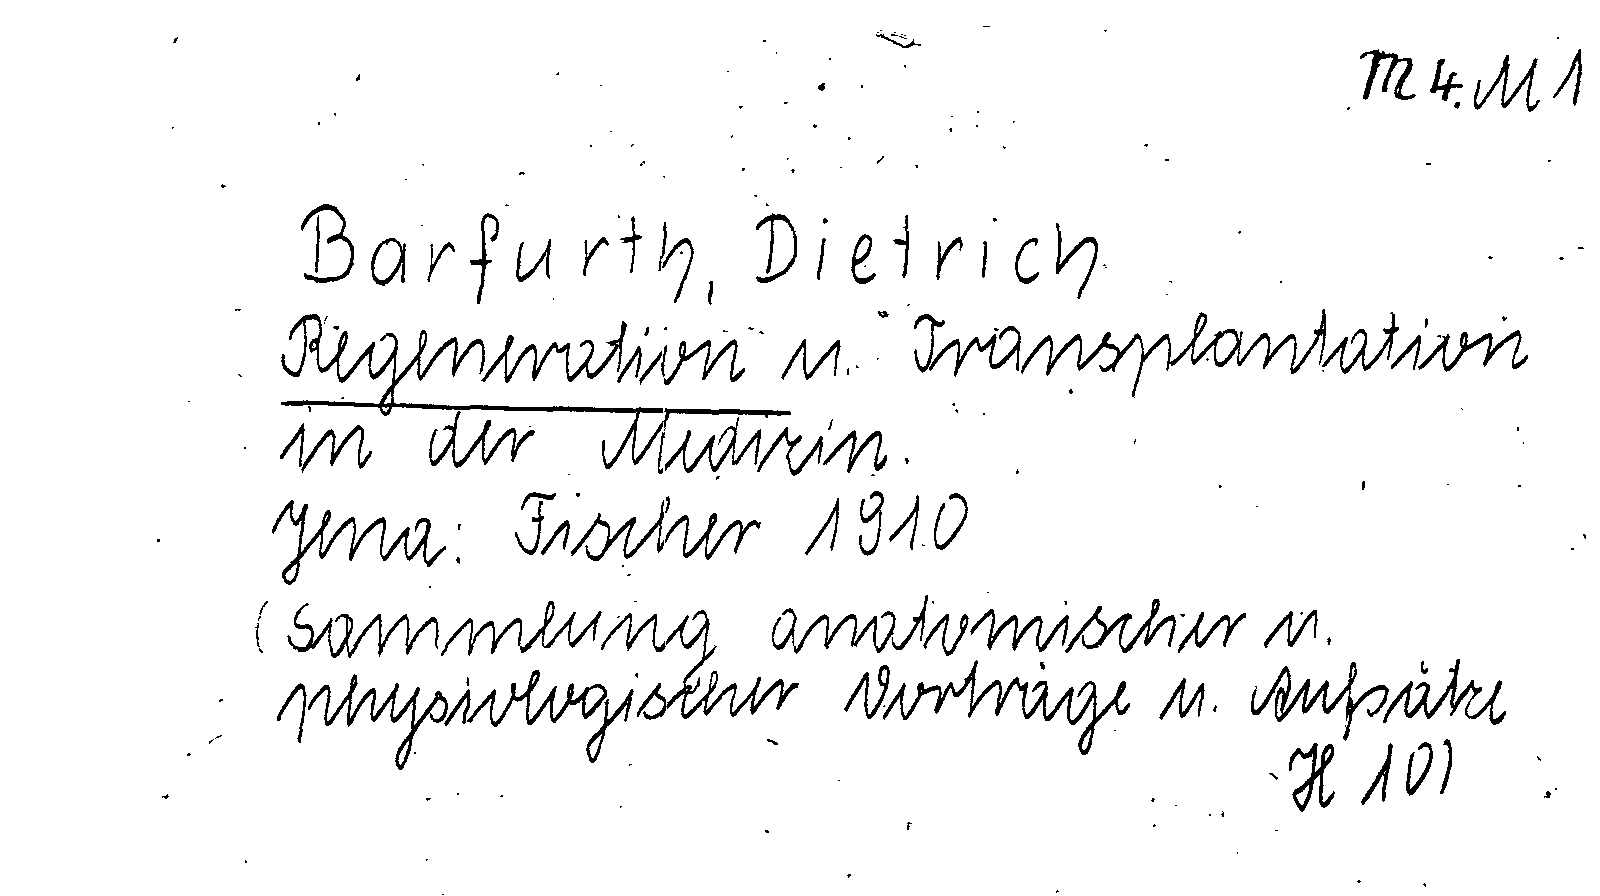 M 4. M 1
Barfurth, Dietrich
Regeneration u. Transplantation
in der Medizin.
Jena: Fischer 1910
(Sammlung anatomischer u.
physiologischer Vorträge u. Aufsätze
H 10)